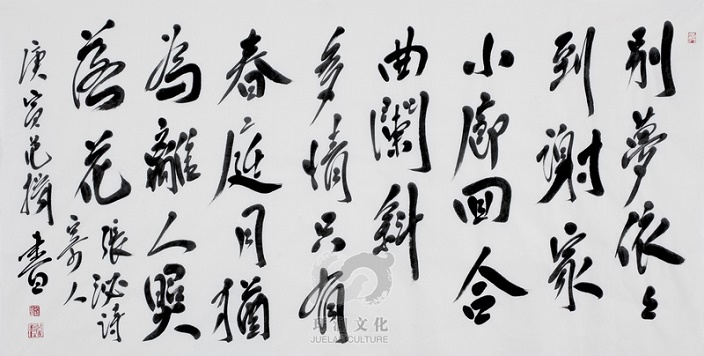 别夢依々
到謝家
小廊回合
曲闌斜
多情只有
春庭月猶
為離人照
落花
張泌詩
寄人
庚寅 書
文化
CULTURE